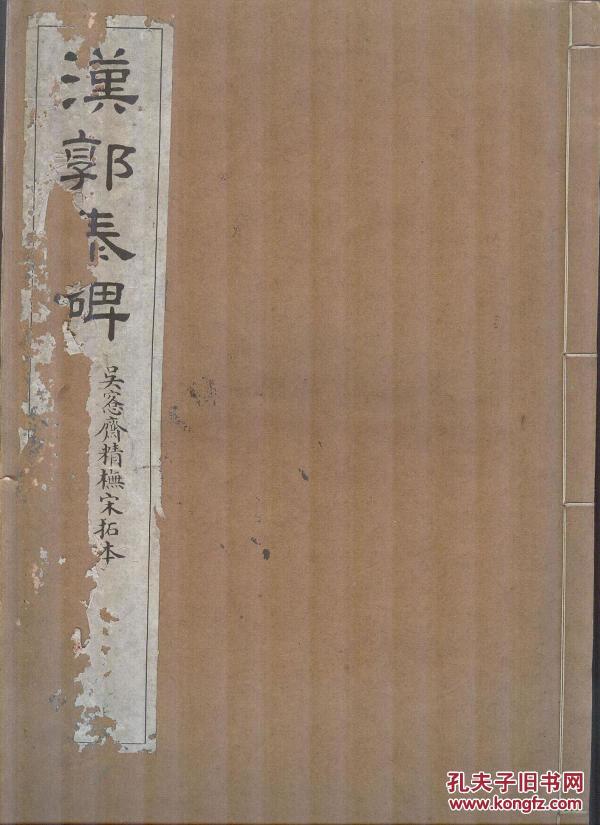 漢郭泰碑
吳愙齋精橅宋拓本
孔夫子旧书网
www.kongfz.com